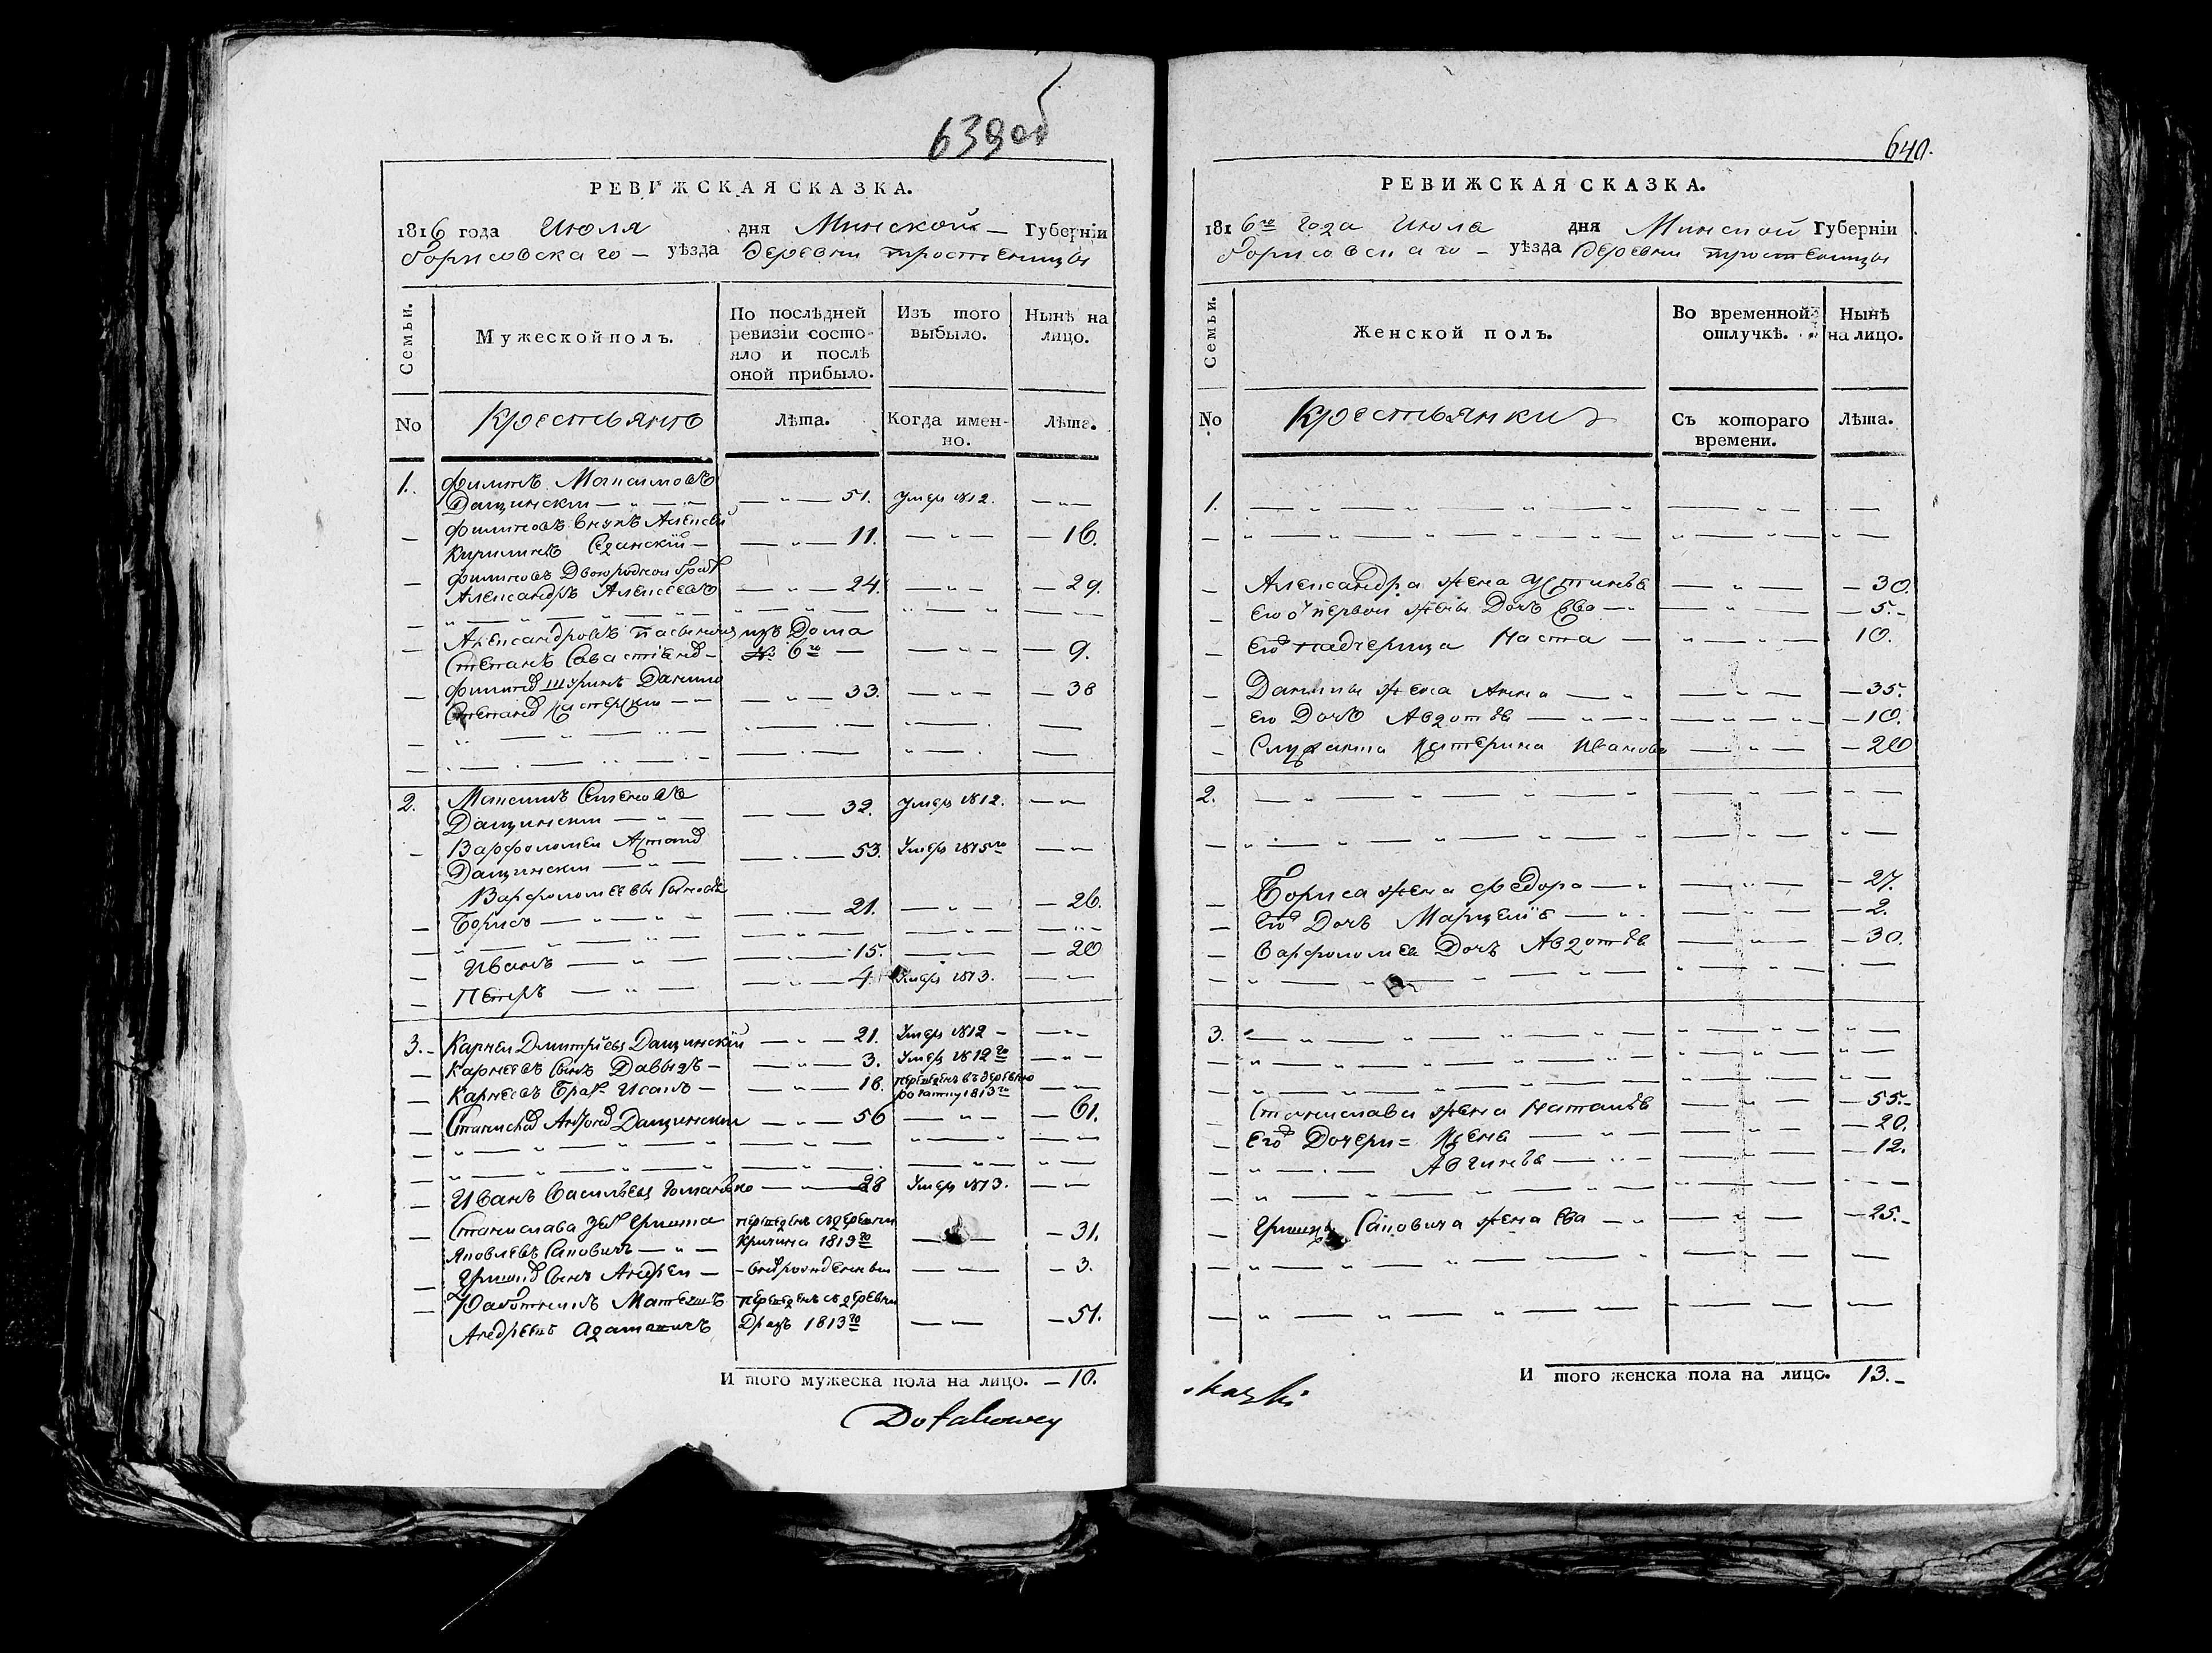 639об
РЕВИЖСКАЯ СКАЗКА.
1816 года Июля дня Минской Губернїи
Борисовскаго уѣзда деревни тростеницы
Семьи.
Мужеской полъ.
По послѣдней ревизїи состояло и послѣ оной прибыло.
Изъ того выбыло.
Нынѣ на лицо.
No
Крестьянъ
Лѣта.
Когда именно.
Лѣта.
1. Филипъ Максимовъ
Дащинскiи 51. умеръ 1812.
Филиповъ внукъ Алексѣй
Кирилинъ 11. 16.
Филиповъ Двоюродной братъ
Александръ Алексеевъ 24. 29.
Александровъ пасынокъ изъ Дома
Степанъ No 6го 9.
Филипов Шуринъ Данило
33. 38
2. Максимъ Семеновъ
Дащинскiи 32. умеръ 1812.
Варфоломеи
Дащинскiи 53. Умеръ 1815го
Варфоломеевы Сыновья
Борисъ 21. 26.
Иванъ 15. 20
Петръ 4. Умеръ 1813.
3. Карнеи Дмитрiевъ Дащинскiй 21. Умеръ 1812
Карнеевъ Сынъ Давыдъ 3. Умеръ 1812го
Карнеевъ Братъ Исакъ 18. переведенъ въ деревню
1813го
Дащинскiи 56 61.
Иванъ Васильевъ 28 Умеръ 1813.
Станислава Зять Гришка переведенъ съ деревни
Яковлевъ Сапович 1813го 31.
Сынъ Андреи 3.
Работникъ Матвей переведенъ съ деревни
Андреевъ 1813го 51.
И того мужеска пола на лицо. 10.
640.
РЕВИЖСКАЯ СКАЗКА.
1816го года Июля дня Минской Губернїи
Борисовскаго уѣзда деревни тростеницы
Семьи.
Женской полъ.
Во временной отлучкѣ.
Нынѣ на лицо.
No
Крестьянки
Съ котораго времени.
Лѣта.
1.
Александра жена Устинья 30.
его первой жены Дочь Ева 5.
его падчерица Наста 10.
Данилы жена Анна 35.
его Дочь Авдотья 10.
Служанка Катерина Иванова 20
2.
Бориса жена Федора 27.
его Дочь 2.
Варфоломея Дочь Авдотья 30.
3.
Станислава жена Наталья 55.
его Дочери 20.
12.
Саповича жена Ева 25.
И того женска пола на лицо. 13.